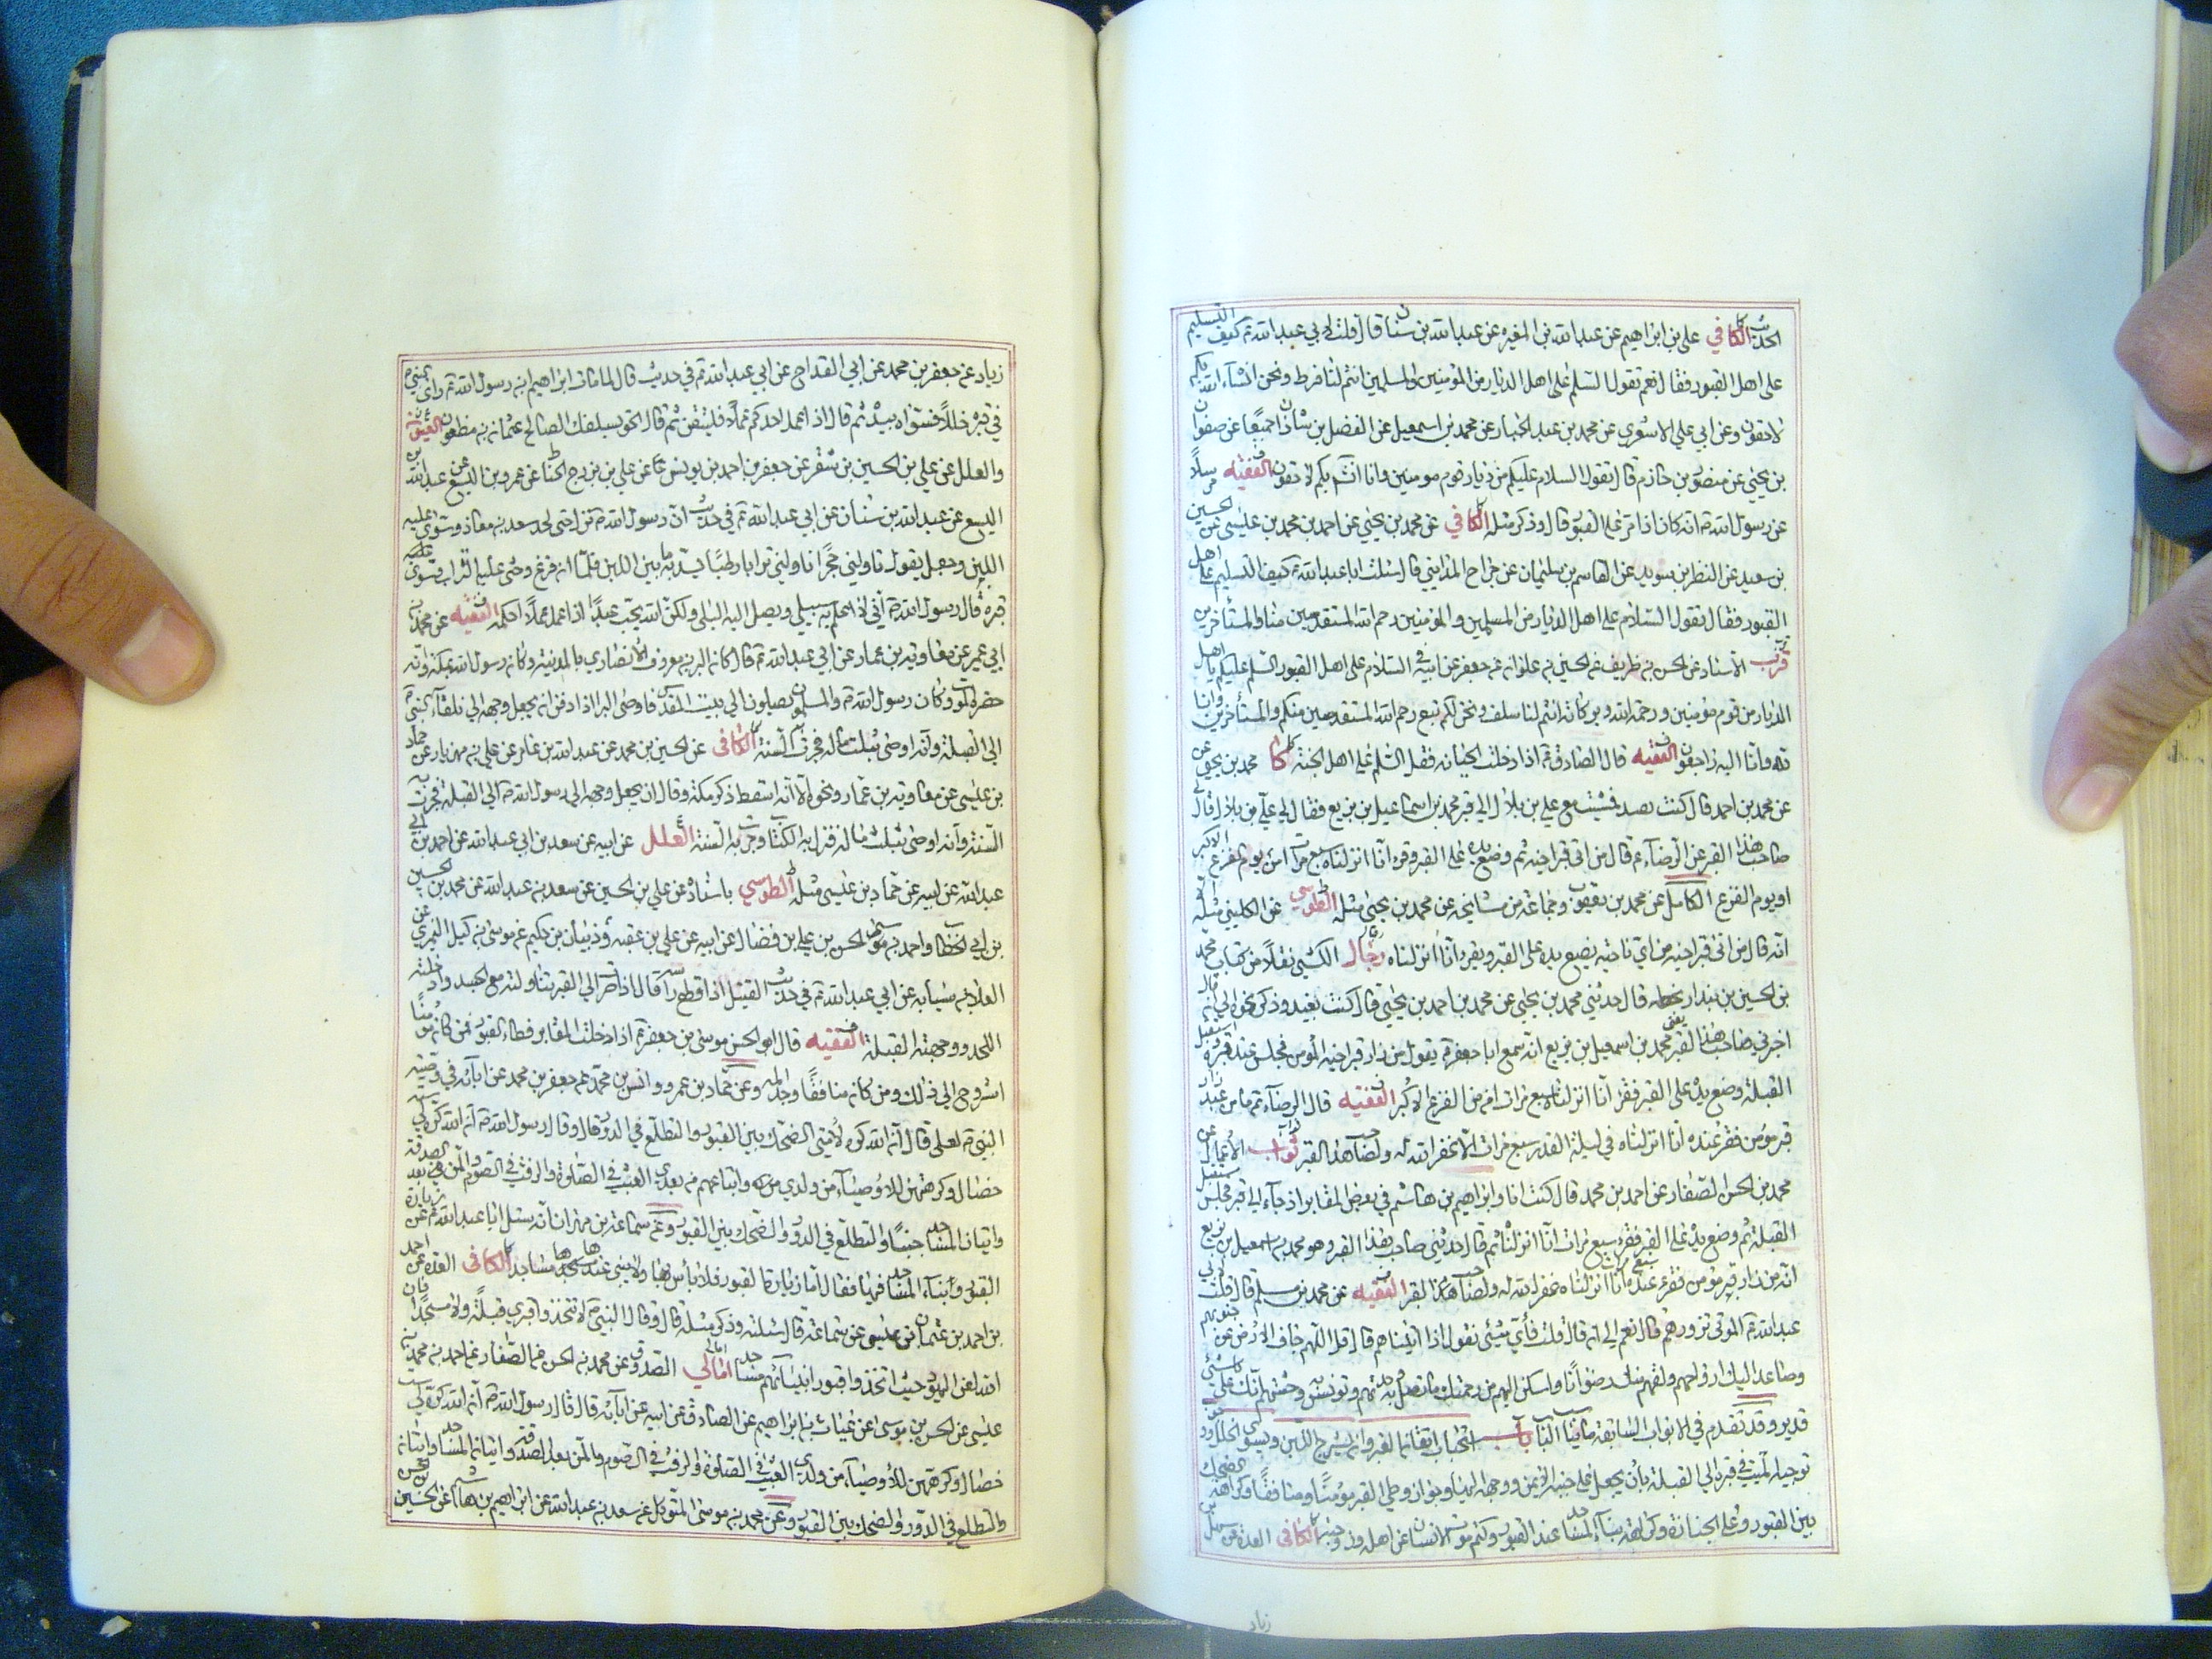 الحديث الكافي علي بن ابراهيم عن عبد الله بن المغيره عن عبد الله بن سنان قال قلت لابي عبد الله ع كيف التسليم
على اهل القبور فقال نعم تقول السلم على اهل الديار من المؤمنين والمسلمين انتم لنا فرط ونحن انشاء الله بكم
لاحقون وعن ابي علي الاشعري عن محمد بن عبد الجبار عن محمد بن اسمعيل عن الفضل بن شاذان جميعًا عن صفوان
بن يحيى عن منصور بن حازم قال تقول السلام عليكم من ديار قوم مومنين وانا انشاء بكم لاحقون الفقيه مرسلًا
عن رسول الله ص انه كان اذا مر على القبور قال وذكر مثله الكافي عن محمد بن يحيى عن احمد بن محمد بن عيسى عن الحسين
بن سعيد عن النظر بن سويد عن القاسم بن سليمان عن جراح المدايني قال سئلت ابا عبد الله ع كيف التسليم على اهل
القبور فقال تقول السلام على اهل الديار من المسلمين والمؤمنين رحم الله المستقدمين منا والمستأخرين
قرب الاسناد عن الحسن بن ظريف عن الحسين بن علوان عن جعفر عن ابيه في السلام على اهل القبور السلم عليكم يا اهل
الديار من قوم مؤمنين ورحمة الله وبركاته انتم لنا سلف ونحن لكم تبع رحم الله المستقدمين منكم والمستأخرين وانا
لله وانا اليه راجعون الفقيه قال الصادق ع اذا دخلت الجبانه فقل السلم على اهل الجنة كا محمد بن يحيى
عن محمد بن احمد قال كنت بفيد فمشيت مع علي بن بلال الي قبر محمد بن اسماعيل بن بزيع فقال لي علي بن بلال قال لي
صاحب هذا القبر عن الرضاء ع قال من اتى قبر اخيه ثم وضع يده على القبر وقرء انا انزلناه سبع مرات امن يوم الفزع الاكبر
او يوم الفزع الكامل عن محمد بن يعقوب وجماعة من مشايخه عن محمد بن يحيى مثله الطوسي عن الكليني مثله
انه قال من اتى قبر اخيه من اي ناحيه يضع يده على القبر ويقرء انا انزلناه رجال الكشي نقلًا من كتاب محمد
بن الحسين بن بندار بخطه قال حدثني محمد بن يحيى عن محمد بن احمد بن يحيى قال كنت بفيد وذكر نحوه الى انه قال
اخبرني صاحب هذا القبر يعني محمد بن اسمعيل بن بزيع انه سمع ابا جعفر ع يقول من زار قبر اخيه المومن فجلس عند قبره واستقبل
القبلة وضع يده على القبر فقرء انا انزلناه سبع مرات امن من الفزع الاكبر الفقيه قال الرضاء ع ما من عبد زار
قبر مؤمن فقرء عنده انا انزلناه في ليلة القدر سبع مرات الا غفر الله له ولصاحب هذا القبر ثواب الاعمال عن
محمد بن الحسن الصفار عن احمد بن محمد قال كنت انا وابراهيم بن هاشم في بعض المقابر اذ جاء الى قبر فجلس مستقبل
القبلة ثم وضع يده على القبر فقرء سبع مرات انا انزلناه ثم قال حدثني صاحب هذا القبر وهو محمد بن اسمعيل بن بزيع
انه من زار قبر مؤمن فقرء عنده سبع مرات انا انزلناه غفر الله له ولصاحب هذا القبر الفقيه عن محمد بن مسلم قال قلت لابي
عبد الله ع الموتى نزورهم قال نعم الى انه قال قلت فأي شئي نقول اذا اتيناهم قال قل اللهم جاف الارض عن جنوبهم
وصاعد اليك ارواحهم ولقهم منك رضوانًا واسكن اليهم من رحمتك ما تصل به وحدتهم وتونس وحشتهم انك على كل شئي
قدير وقد تقدم في الابواب السابقة ما يناسب الباب باب استحباب اتقان القبر وان يشرج اللبن ويسوى الخلل ود
توجيه الميت في قبره الي القبلة بأن يجعل على جنبه الايمن ووجهه اليها وجواز وطي القبر مومنًا ومنافقًا وكراهة الضحك
بين القبور وعلى الجنازة وكراهة بناء المساجد عند القبور وكتم موت الانسان عن اهله وزوجته الكافي العدة عن سهل بن
زياد
زياد عن جعفر بن محمد عن ابي القداح عن ابي عبد الله ع في حديث قال لما مات ابراهيم بن رسول الله ص راى النبي ص
في قبره خللًا فسواه بيده ثم قال اذا عمل احدكم عملًا فليتقن ثم قال الحق بسلفك الصالح عثمان بن مظعون
والعلل عن علي بن الحسين بن سقر عن جعفر بن احمد بن يوسف عن علي بن بزرج الحناط عن عمرو بن اليسع عن عبد الله بن
اليسع عن عبد الله بن سنان عن ابي عبد الله ع في حديث ان رسول الله ص نزل حتى لحد سعد بن معاذ وسوى عليه
اللبن وجعل يقول ناولني حجرًا ناولني ترابا رطبًا يسد به ما بين اللبن فلما ان فرغ وحثى عليه التراب وسوى عليه
قبره قال رسول الله ص اني لاعلم انه سيبلي ويصل اليه البلى ولكن الله يحب عبدًا اذا عمل عملًا احكمه الفقيه عن محمد بن
ابي عمير عن معاوية بن عمار عن ابي عبد الله ع قال كان البراء بن معرور الانصاري بالمدينة وكان رسول الله بمكة وانه
حضره الموت وكان رسول الله ص والمسلمون يصلون الي بيت المقدس فاوصى البراء اذا دفن ان يجعل وجهه الي تلقاء النبي ص
الي القبلة وانه اوصى بثلث ماله فجرت به السنة الكافي عن الحسين بن محمد عن عبد الله بن عامر عن علي بن مهزيار عن حماد
بن عليسى عن معاوية بن عمار ونحوه الا انه اسقط ذكر مكة وقال ان يجعل وجهه الى رسول الله ص الي القبلة فجرت به
السنة وانه اوصى بثلث ماله فنزل به الكتاب وجرت به السنة العلل عن ابيه عن سعد بن ابي عبد الله عن احمد بن ابي
عبد الله عن ابيه عن حماد بن عليسى مثله الطوسي باسناده عن علي بن الحسين عن سعد بن عبد الله عن محمد بن الحسين
بن ابي الخطاب واحمد بن الحسن بن علي بن فضال عن ابيه عن علي بن عقبه وذبيان بن حكيم عن موسى بن اكيل النميري عن
العلاء بن سيابه عن ابي عبد الله ع في حديث القتيل اذا قطع رأسه قال اذا صرت الي القبر تناولته مع الجسد وادخلته
اللحد ووجهته القبلة الفقيه قال ابو الحسن موسى بن جعفر ع اذا دخلت المقابر فطاء القبور فمن كان مومنًا
استروح الي ذلك ومن كان منافقًا وجد المه وعن حماد بن عمرو وانس بن محمد عن جعفر بن محمد عن ابائه في وصية
النبي ص لعلى قال ان الله كره لامتي الضحك بين القبور والتطلع في الدور قال وقال رسول الله ص ان الله كره لي ست
خصال وكرهتهن للاوصياء من ولدي واتباعهم من بعدي العبث في الصلوة والرفث في الصوم والمن بعد الصدقة
واتيان المساجد جنبًا والتطلع في الدور والضحك بين القبور وعن سماعة بن مهران انه سئل ابا عبد الله ع عن زيارة
القبور وبناء المساجد فيها فقال اما زيارة القبور فلا بأس بها ولا يبنى عندها مساجد الكافي العدة عن احمد
بن احمد بن عثمان بن عيسى عن سماعة قال سئلته وذكر مثله قال وقال النبي ص لا تتخذوا قبري قبلةً ولا مسجدًا فان
الله لعن اليهود حيث اتخذوا قبور انبيائهم مساجد امالي الصدوق عن محمد بن الحسن عن الصفار عن احمد بن محمد بن
عليسى عن الحسن بن موسى عن غياث بن ابراهيم عن الصادق عن ابيه عن ابائه قال قال رسول الله ص ان الله كره لي ست
خصال وكرهتهن للاوصياء من ولدي العبث في الصلوة والرفث في الصوم والمن بعد الصدقة واتيان المساجد
والتطلع في الدور والضحك بين القبور وعن محمد بن موسى المتوكل عن سعد بن عبد الله عن ابراهيم بن هاشم عن الحسين